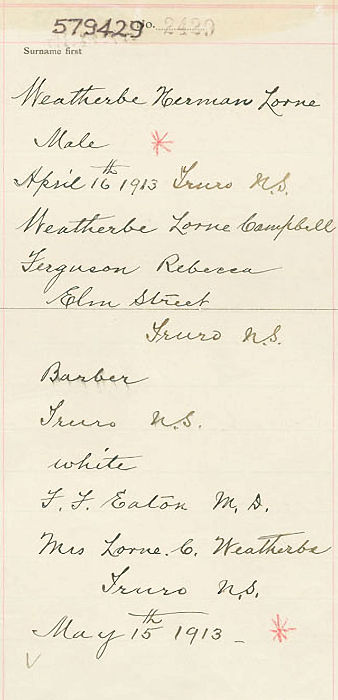 579429 No. 2429
Surname first
Weatherbe Herman Lorne
Male
April 16th 1913 Truro N.S.
Weatherbe Lorne Campbell
Ferguson Rebecca
Elm Street
Truro N.S.
Barber
Truro N.S.
white
F. F. Eaton M.D.
Mrs Lorne. C. Weatherbe
Truro N.S.
May 15th 1913 -